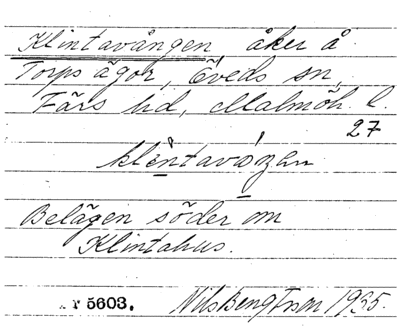 Klintavången, åker å
Torps ägor, Öveds sn,
Färs hd, Malmöh. l.
27
Belägen söder om
Klintahus.
5603. Nils Bengtsson 1935.